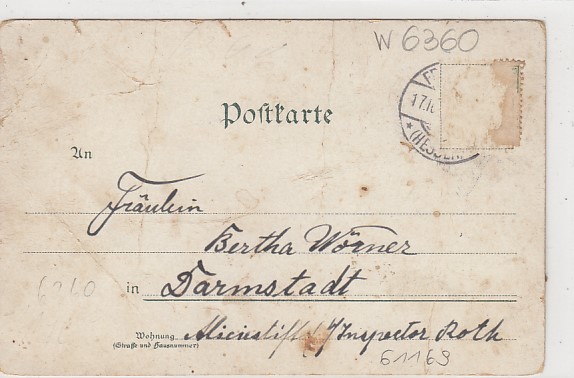 W 6360
17.10
(HESSEN)
Postkarte
An
Fräulein
Bertha Wörner
6210
in Darmstadt
Wohnung
(Straße und Hausnummer)
Alicestift Inspector Roth
61169